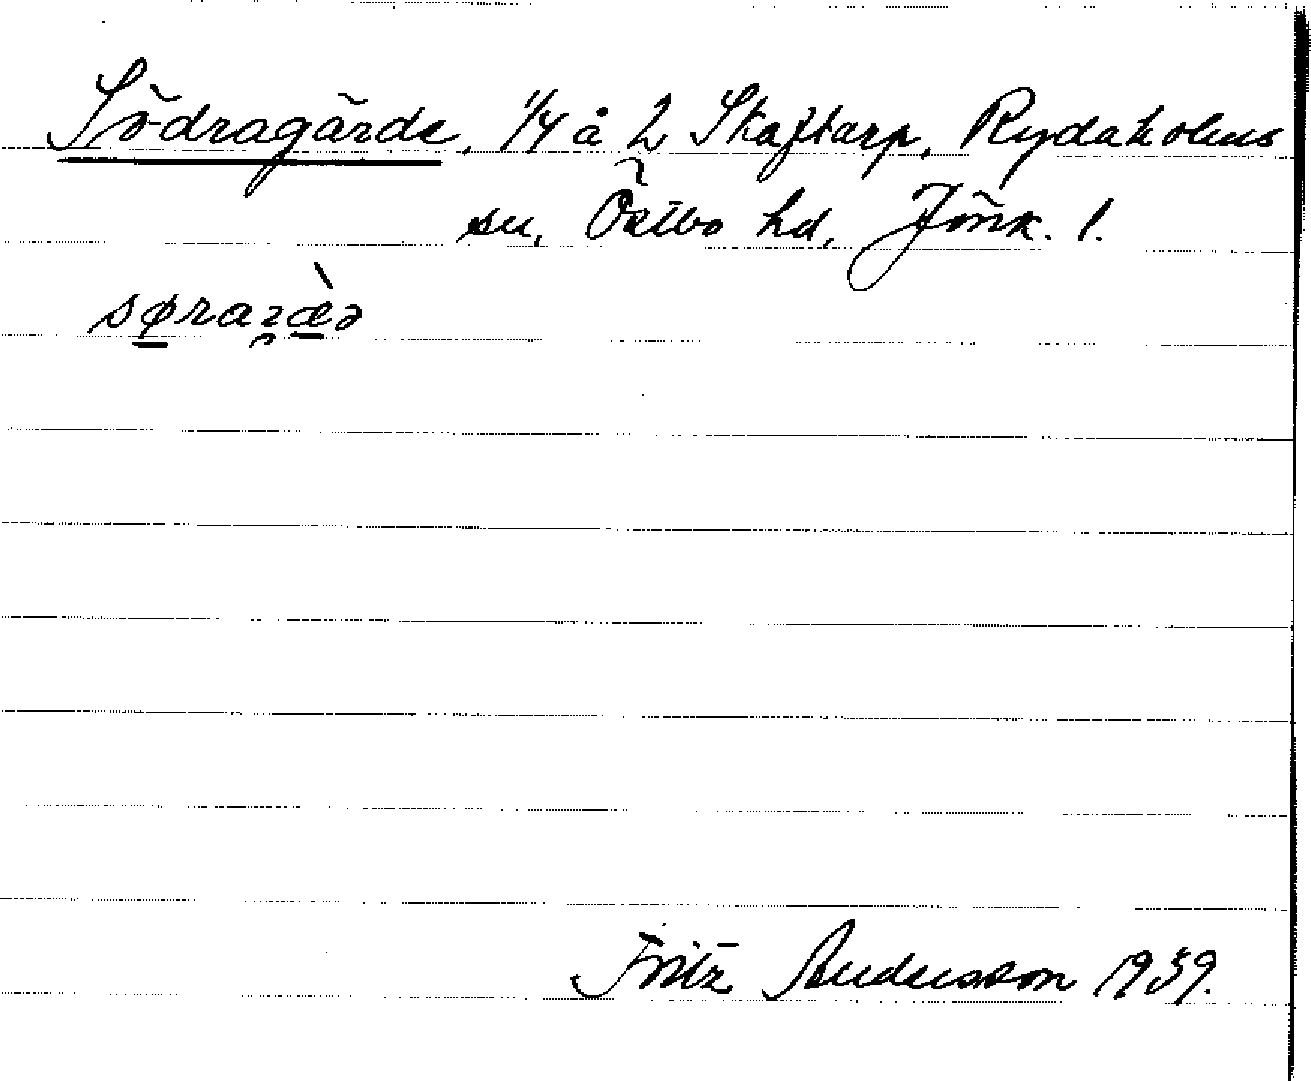 Södragärde, 1/4 å 2 Skaftarp, Rydaholms
sn, Östbo hd, Jönk. l.
Fritz Andersson 1939.